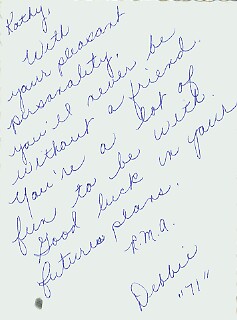 Kathy,
With
your pleasant
personality,
you'll never be
without a friend.
You're a lot of
fun to be with.
Good luck in your
future plans.
R.M.A.
Debbie
"71"